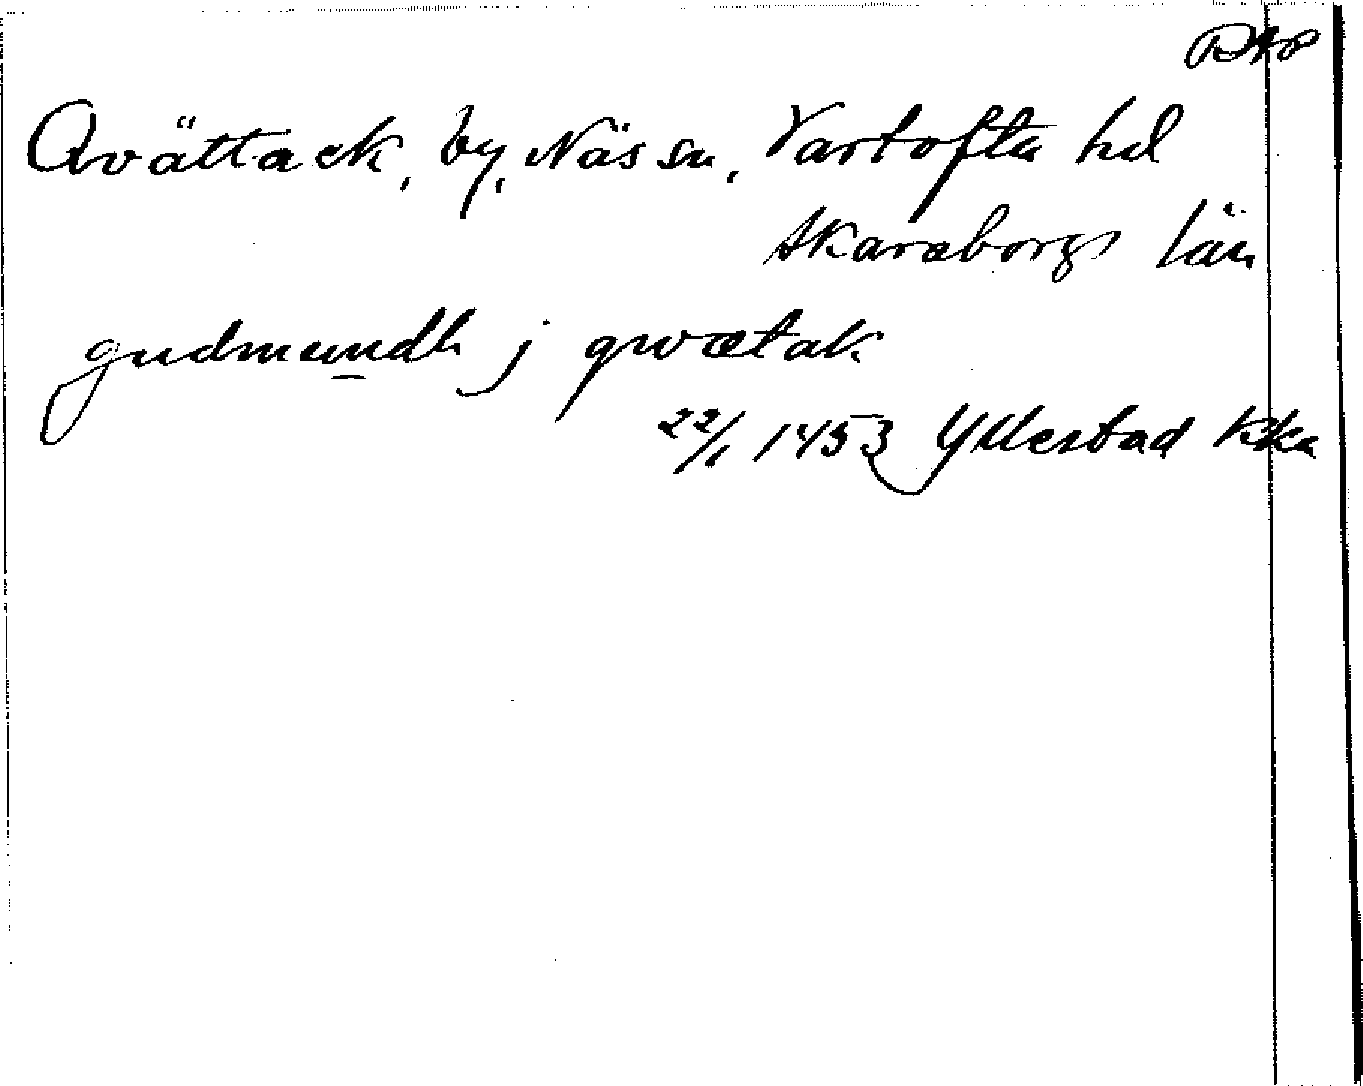 Qvättack, by, Näs sn, Vartofta hd
Skaraborgs län
gudmundh j qwætak
22/1 1453 Yllestad kka